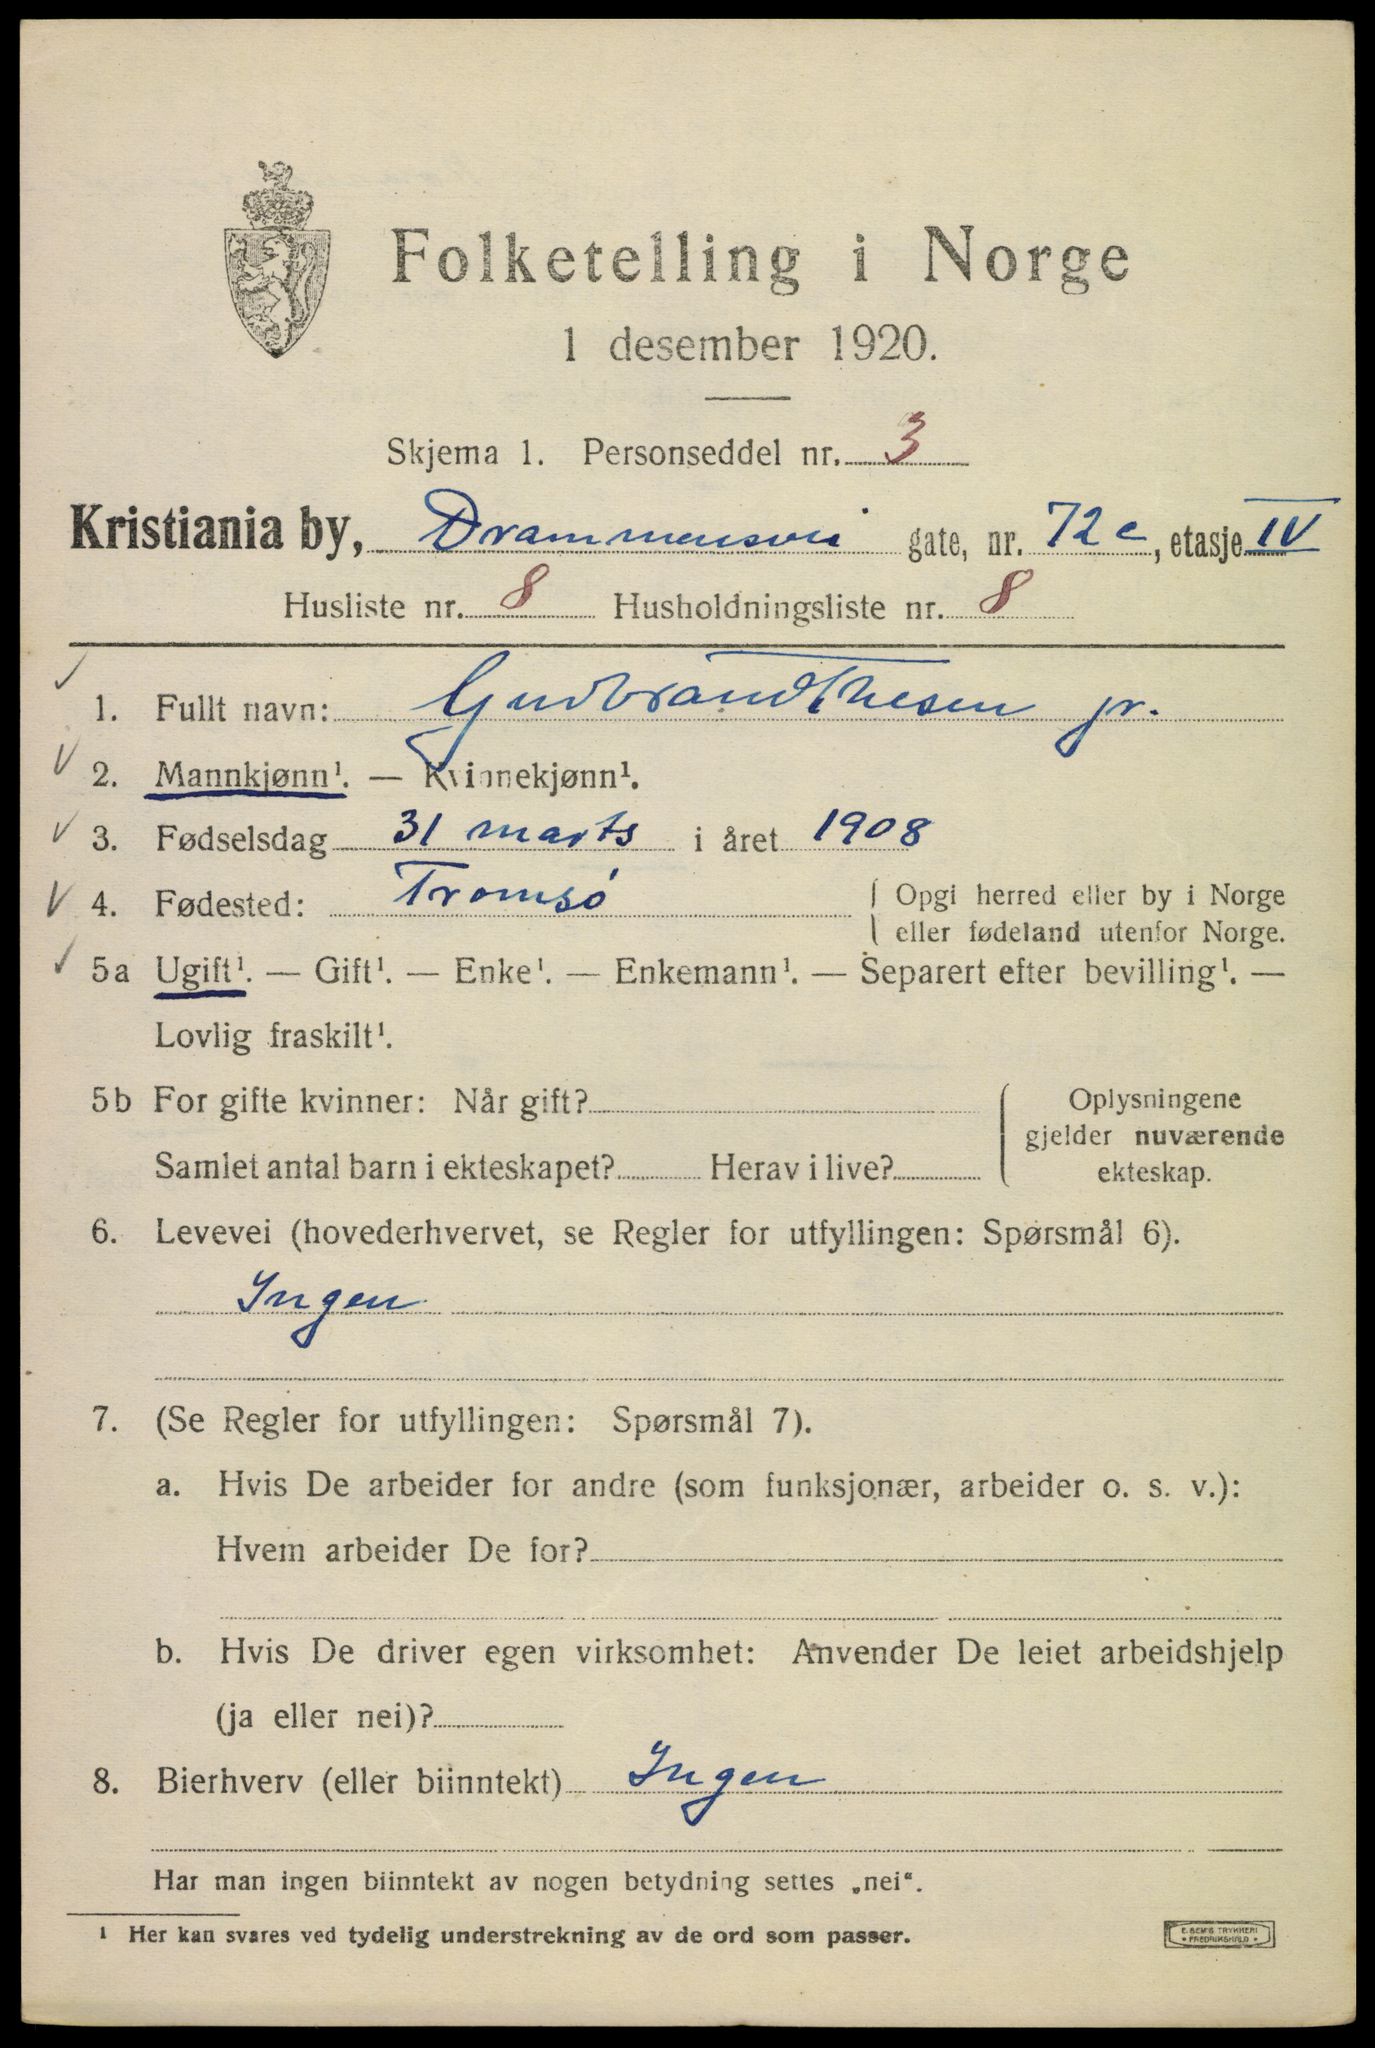 Folketelling i Norge
1 desember 1920.
Skjema 1. Personseddel nr. 3
Kristiania by, Drammensvei gate, nr. 72 c, etasje IV
Husliste nr. 8 Husholdningsliste nr. 8
1. Fullt navn: Gudbrand Thesen jr.
2. Mannkjønn¹. — Kvinnekjønn¹.
3. Fødselsdag 31 marts i året 1908
4. Fødested: Tromsø { Opgi herred eller by i Norge
eller fødeland utenfor Norge.
5a Ugift¹. — Gift¹. — Enke¹. — Enkemann¹. — Separert efter bevilling¹. —
Lovlig fraskilt¹.
5b For gifte kvinner: Når gift? Oplysningene
gjelder nuværende
Samlet antal barn i ekteskapet? Herav i live? ekteskap.
6. Levevei (hovederhvervet, se Regler for utfyllingen: Spørsmål 6).
Ingen
7. (Se Regler for utfyllingen: Spørsmål 7).
a. Hvis De arbeider for andre (som funksjonær, arbeider o. s. v.):
Hvem arbeider De for?
b. Hvis De driver egen virksomhet: Anvender De leiet arbeidshjelp
(ja eller nei)?
8. Bierhverv (eller biinntekt) Ingen
Har man ingen biinntekt av nogen betydning settes „nei“.
¹ Her kan svares ved tydelig understrekning av de ord som passer.
E. SEM'S TRYKKERI
• FREDRIKSHALD •